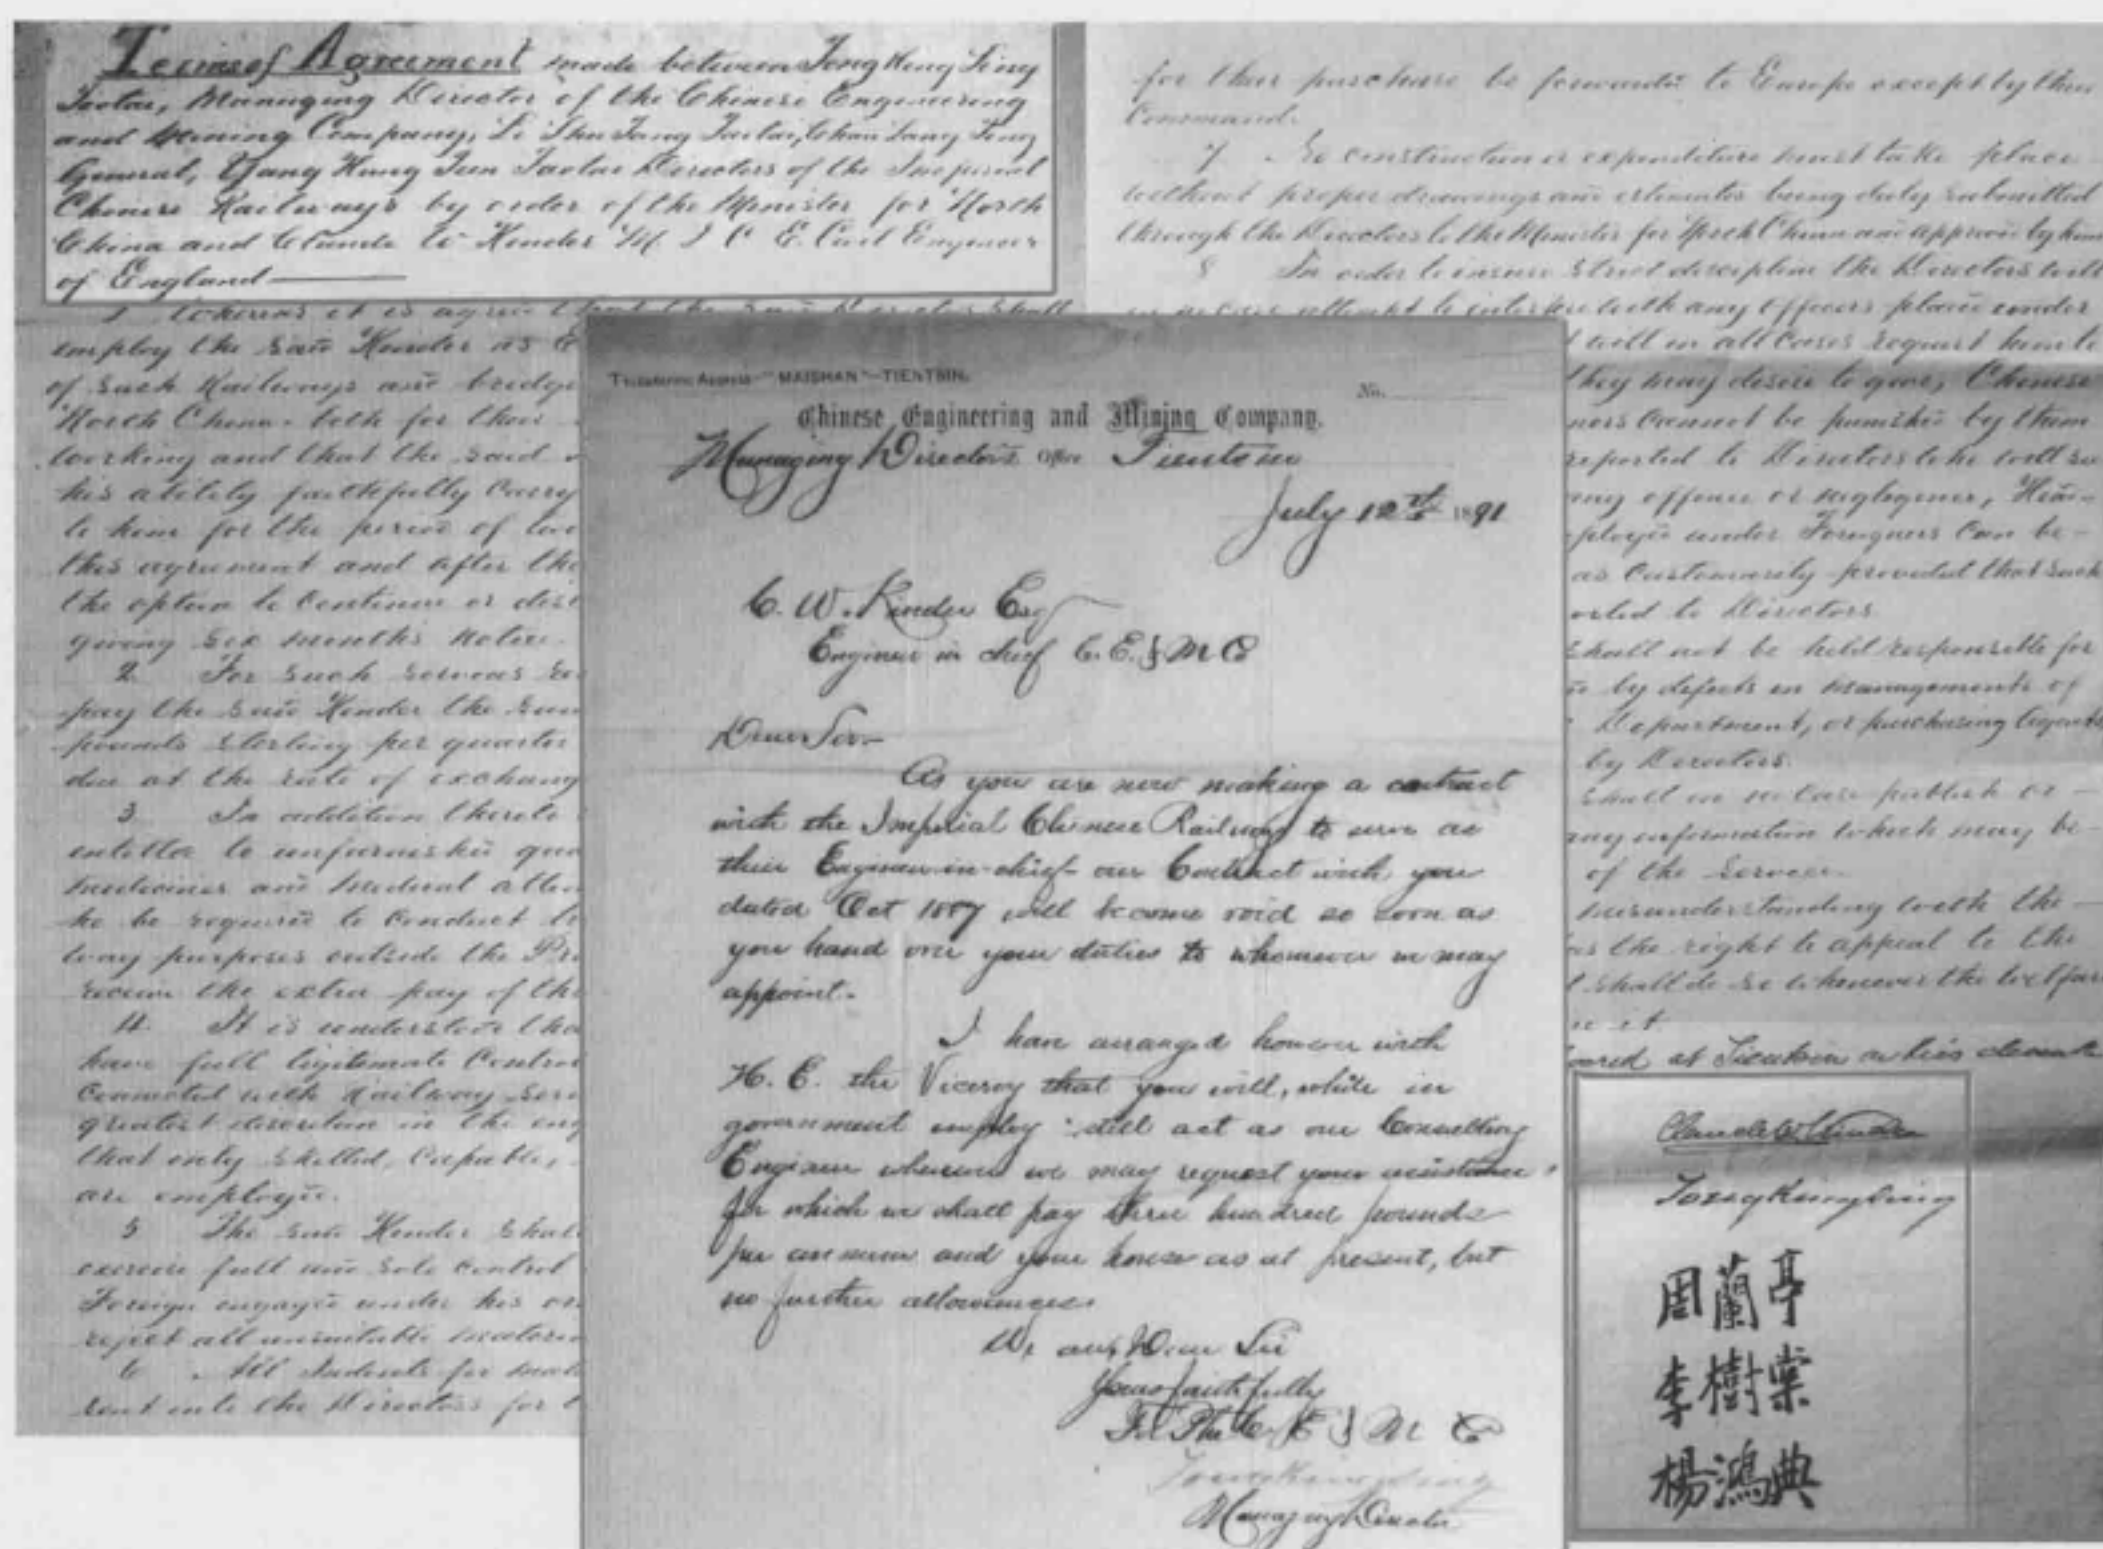 Terms of Agreement made between Tong King Sing
Taotai, Managing Director of the Chinese Engineering
and Mining Company, Li Shu Tang Taotai, Chan Lang Ting
General, Yang Hung Tien Taotai Directors of the Imperial
Chinese Railways by order of the Minister for North
China and Claude W Kinder M. I C E. Civil Engineer
of England
1 Whereas it is agreed that the said Directors shall
employ the said Kinder as E
of such Railways and bridge
North China both for their
working and that the said
his ability faithfully carry
to him for the period of two
this agreement and after the
the option to continue or
giving six months notice.
2 For such services
pay the said Kinder the sum
pounds sterling per quarter
due at the rate of exchang
3 In addition thereto
entitled to unfurnished qua
medicines and medical atten
he be required to conduct
way purposes outside the Pr
receive the extra pay of
4 It is understood tha
have full legitimate Control
connected with Railway
greatest discretion in the eng
that only skilled, Capable,
are employed.
5 The said Kinder shall
exercise full and sole control
Foreign engaged under his
reject all unsuitable material
6 All Indents for mat
sent into the Directors for
for their purchase be forwarded to Europe except by their
Command.
7 No construction or expenditure must take place
without proper drawings and estimates being duly submitted
through the Directors to the Minister for North China and approved by him
8 In order to ensure strict discipline the Directors will
in no case attempt to interfere with any Officers placed under
will in all Cases request him to
they may desire to give, Chinese
ners cannot be punished by them
reported to Directors who will
any offence or negligence,
ployed under Foreigners Can be
as Customarily provided that such
orted to Directors
shall not be held responsible for
by defects in managements of
Department, or purchasing Agents
by Directors.
shall in no Case publish or
any information which may be
of the Service.
misunderstanding with the
as the right to appeal to the
shall do so whenever the
it
at Tientsin on this eleventh
Claude W Kinder
Tong King Sing
周蘭亭
李樹棠
楊鴻典
Telegraphic Address "MAISHAN" TIENTSIN.
No.
Chinese Engineering and Mining Company.
Managing Director's Office Tientsin
July 12th 1891
C. W. Kinder Esq
Engineer in chief C. E. & M Co
Dear Sir
As you are now making a contract
with the Imperial Chinese Railways to serve as
their Engineer-in-chief our Contract with you
dated Oct 1887 will become void so soon as
you hand over your duties to whomever we may
appoint.
I have arranged however with
H. E. the Viceroy that you will, while in
government employ still act as our Consulting
Engineer whenever we may request your assistance
for which we shall pay three hundred pounds
per annum and your house as at present, but
no further allowances.
We are, Dear Sir
Yours faithfully
For The C. E & M Co
Tong King Sing
Managing Director